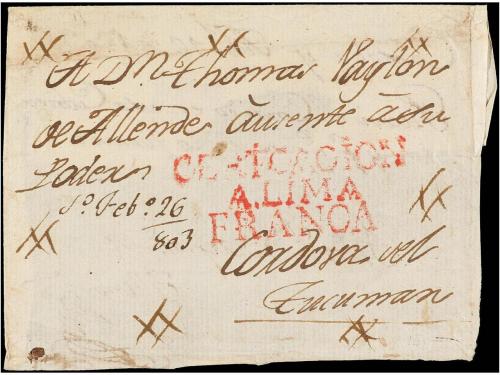 A Dn. Thomas Vaylon
de Allende ausente â su
Poder
Feb.o 26
803
CERTICACION
A.LIMA
FRANCA
Cordova del
Tucuman